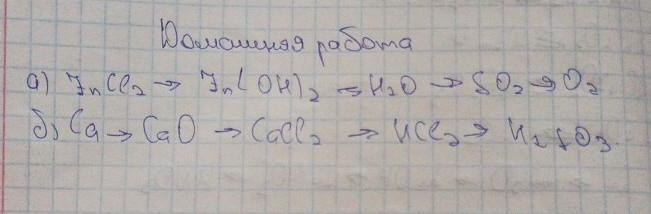 Домашняя работа
а) ZnCl₂ → Zn(OH)₂ → H₂O → SO₂ → O₂
б) Ca → CaO → CaCl₂ → HCl₂ → H₂SO₃.